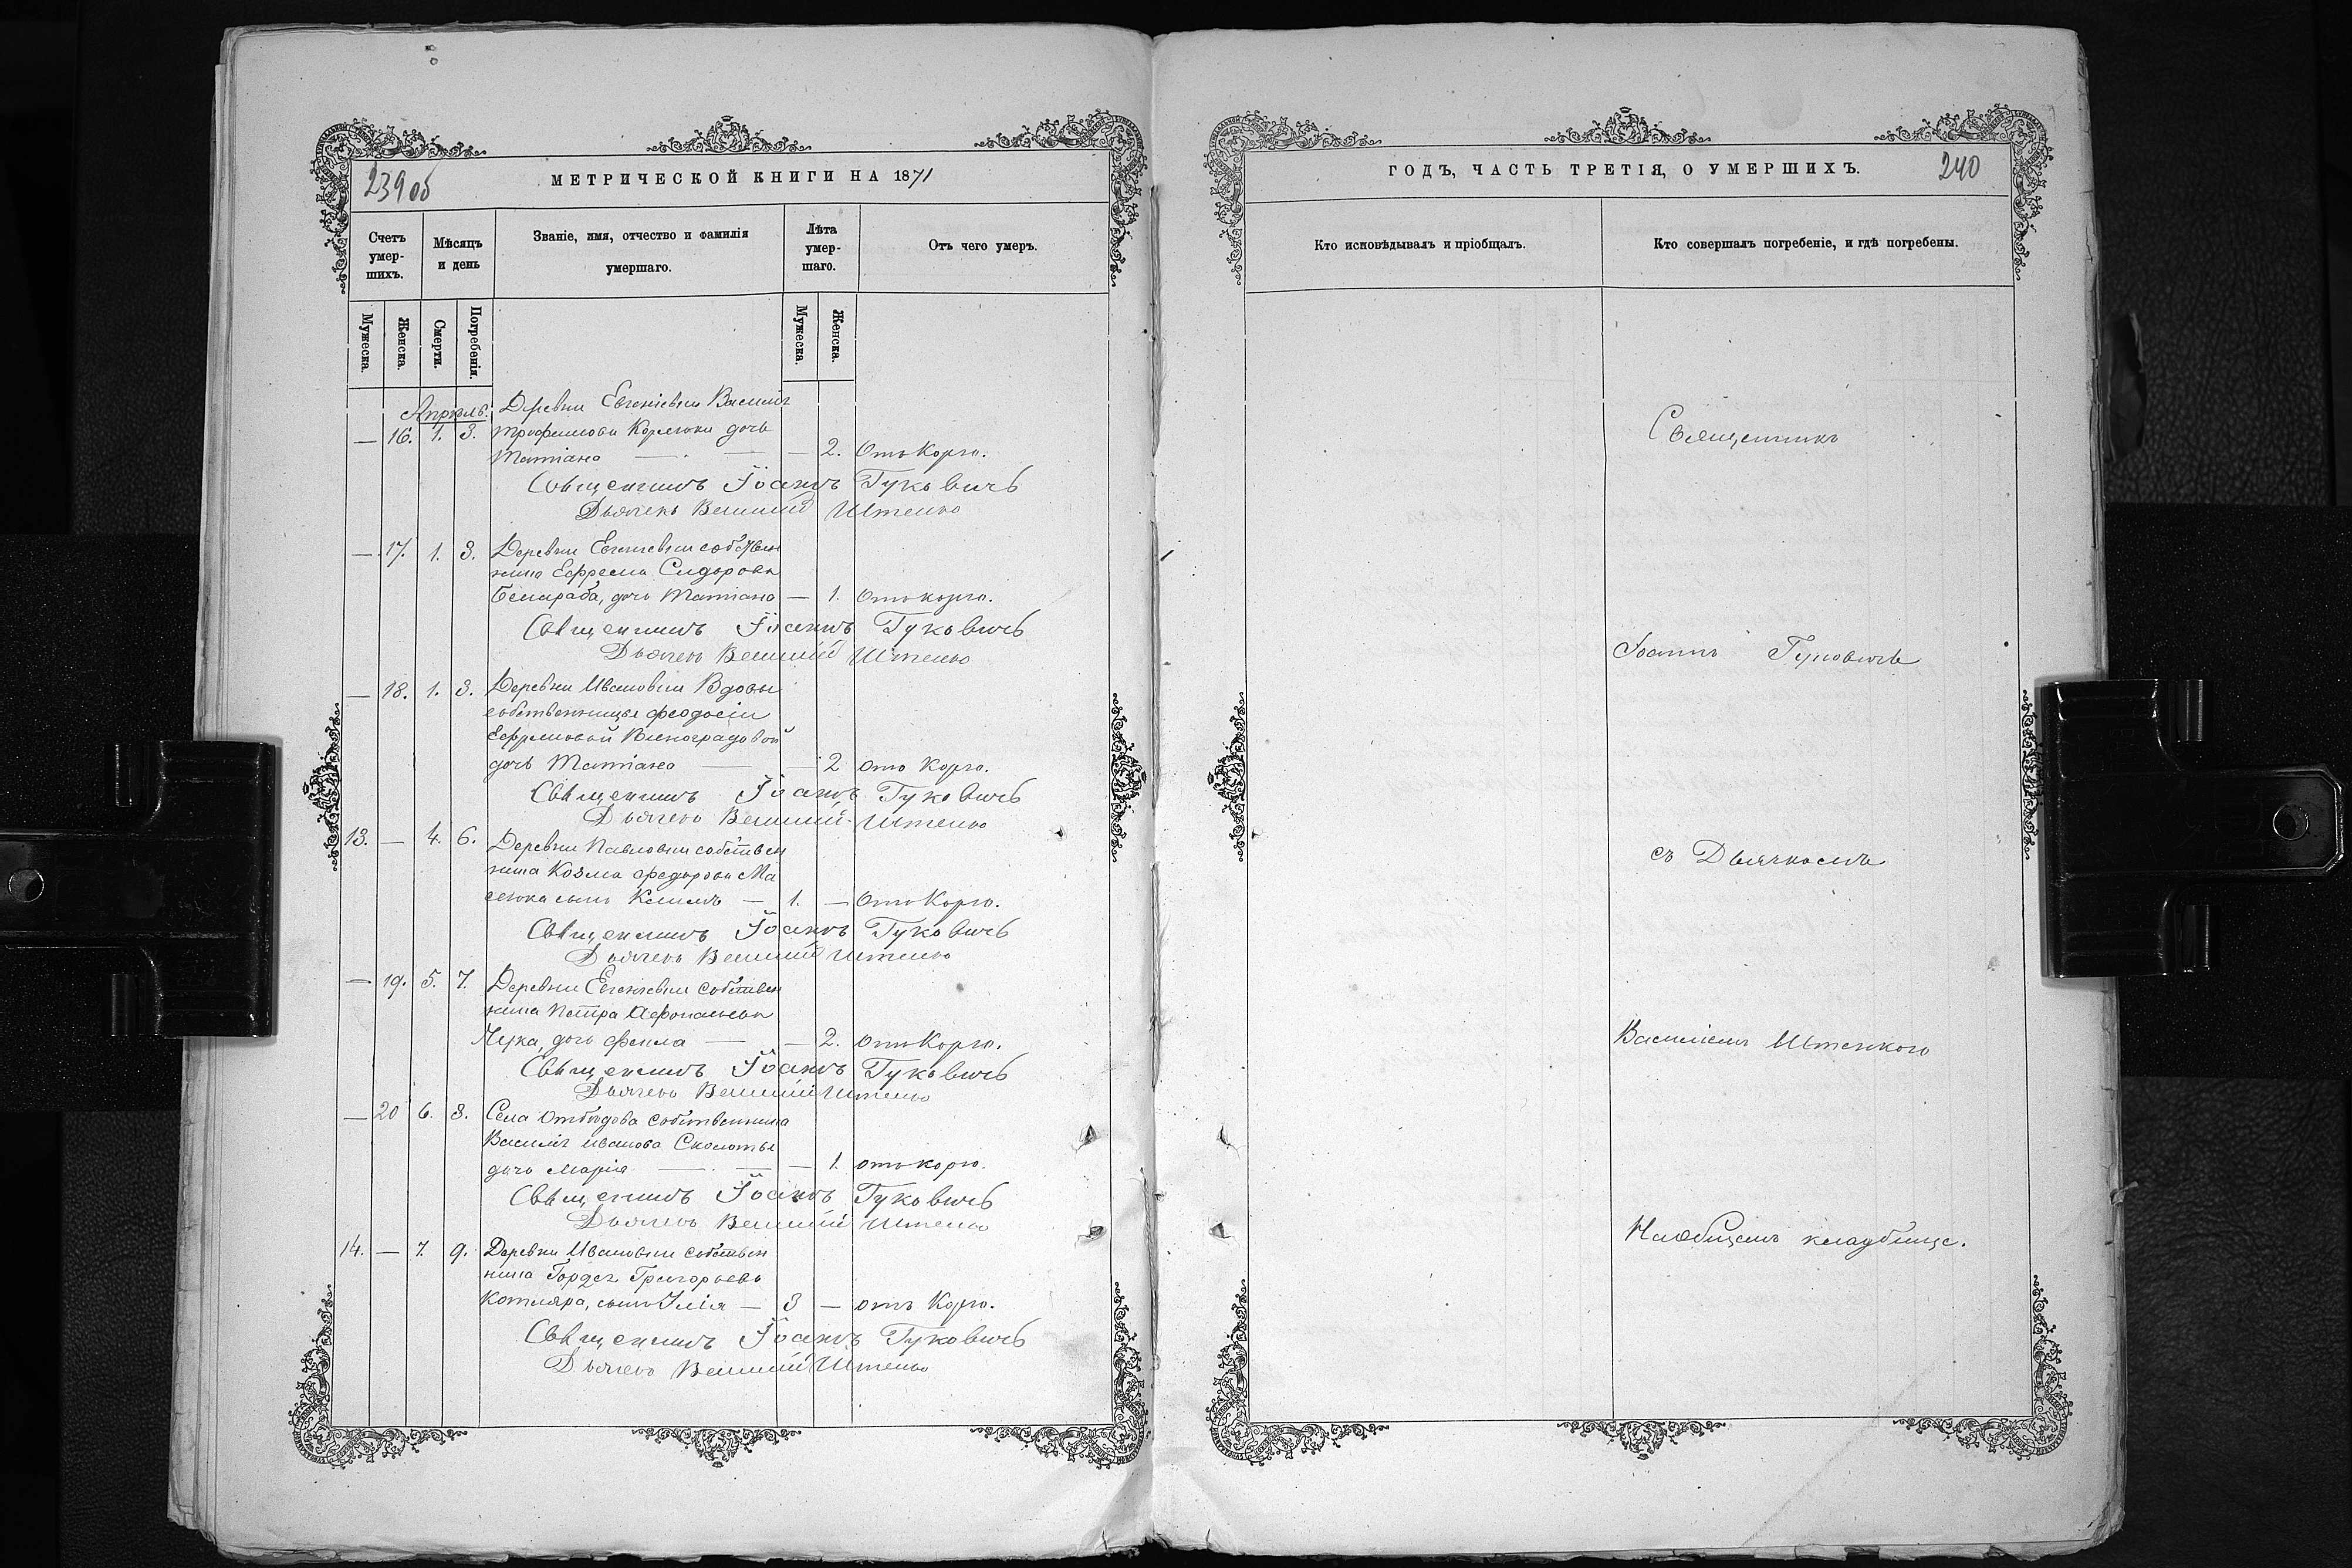 239 об
МЕТРИЧЕСКОЙ КНИГИ НА 1871
Счетъ умер-шихъ.
Мѣсяцъ и день
Званіе, имя, отчество и фамилія умершаго.
Лѣта умер-шаго.
Отъ чего умеръ.
Мужеска.
Женска.
Смерти.
Погребенія.
Мужеска.
Женска.
Апрѣль.
Деревни Евгеніевки Василія
— 16. 1. 3. Трофимова дочь
Татіана — — — 2. Отъ Кору.
Священникъ Іоаннъ Гуковичъ
Дьячекъ Василій Штенко
— 17. 1. 3. Деревни Евгеніевки собствен
ника Ефрема Сидорова
Бешараба, дочь Татіана — 1. Отъ кору.
Священникъ Іоаннъ Гуковичъ
Дьячекъ Василій Штенко
— 18. 1. 3. Деревни Ивановки Вдовы
собственницы Феодосіи
Ефремовой Виноградовой
дочь Татіана — — 2 отъ Кору.
Священникъ Іоаннъ Гуковичъ
Дьячекъ Василій Штенко
13. — 4. 6. Деревни Павловки собствен
ника Козма Федорова Ма
сынъ Климъ — 1. — Отъ Кору.
Священникъ Іоаннъ Гуковичъ
Дьячекъ Василій Штенко
— 19. 5. 7. Деревни Евгеніевки собствен
ника Петра Афонасьева
дочь Фекла — — 2. отъ Кору.
Священникъ Іоаннъ Гуковичъ
Дьячекъ Василій Штенко
— 20 6. 8. Села собственника
Василія Иванова
дочь Марія — — — 1. отъ кору.
Священникъ Іоаннъ Гуковичъ
Дьячекъ Василій Штенко
14. — 7. 9. Деревни Ивановки собствен
ника Гордея Григорьева
Котляра, сынъ Илія — 3 — отъ Кору.
Священникъ Іоаннъ Гуковичъ
Дьячекъ Василій Штенко
ГОДЪ, ЧАСТЬ ТРЕТІЯ, О УМЕРШИХЪ.
240
Кто исповѣдывалъ и пріобщалъ.
Кто совершалъ погребеніе, и гдѣ погребены.
Священникъ
Іоаннъ Гуковичъ
съ Дьячкомъ
Василіемъ Штенкого
На общемъ кладбище.